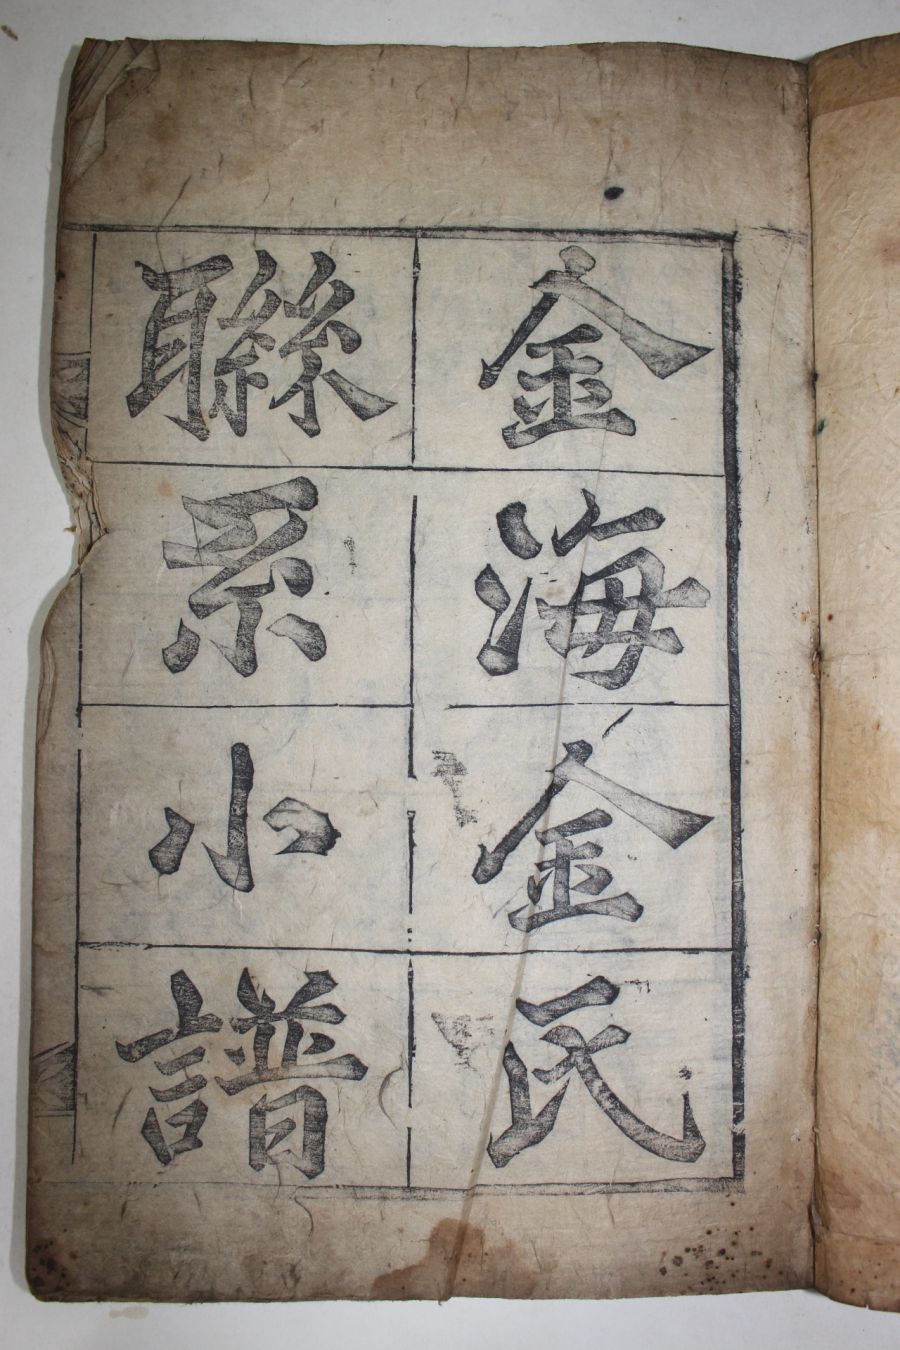 金海金氏
聮系小譜